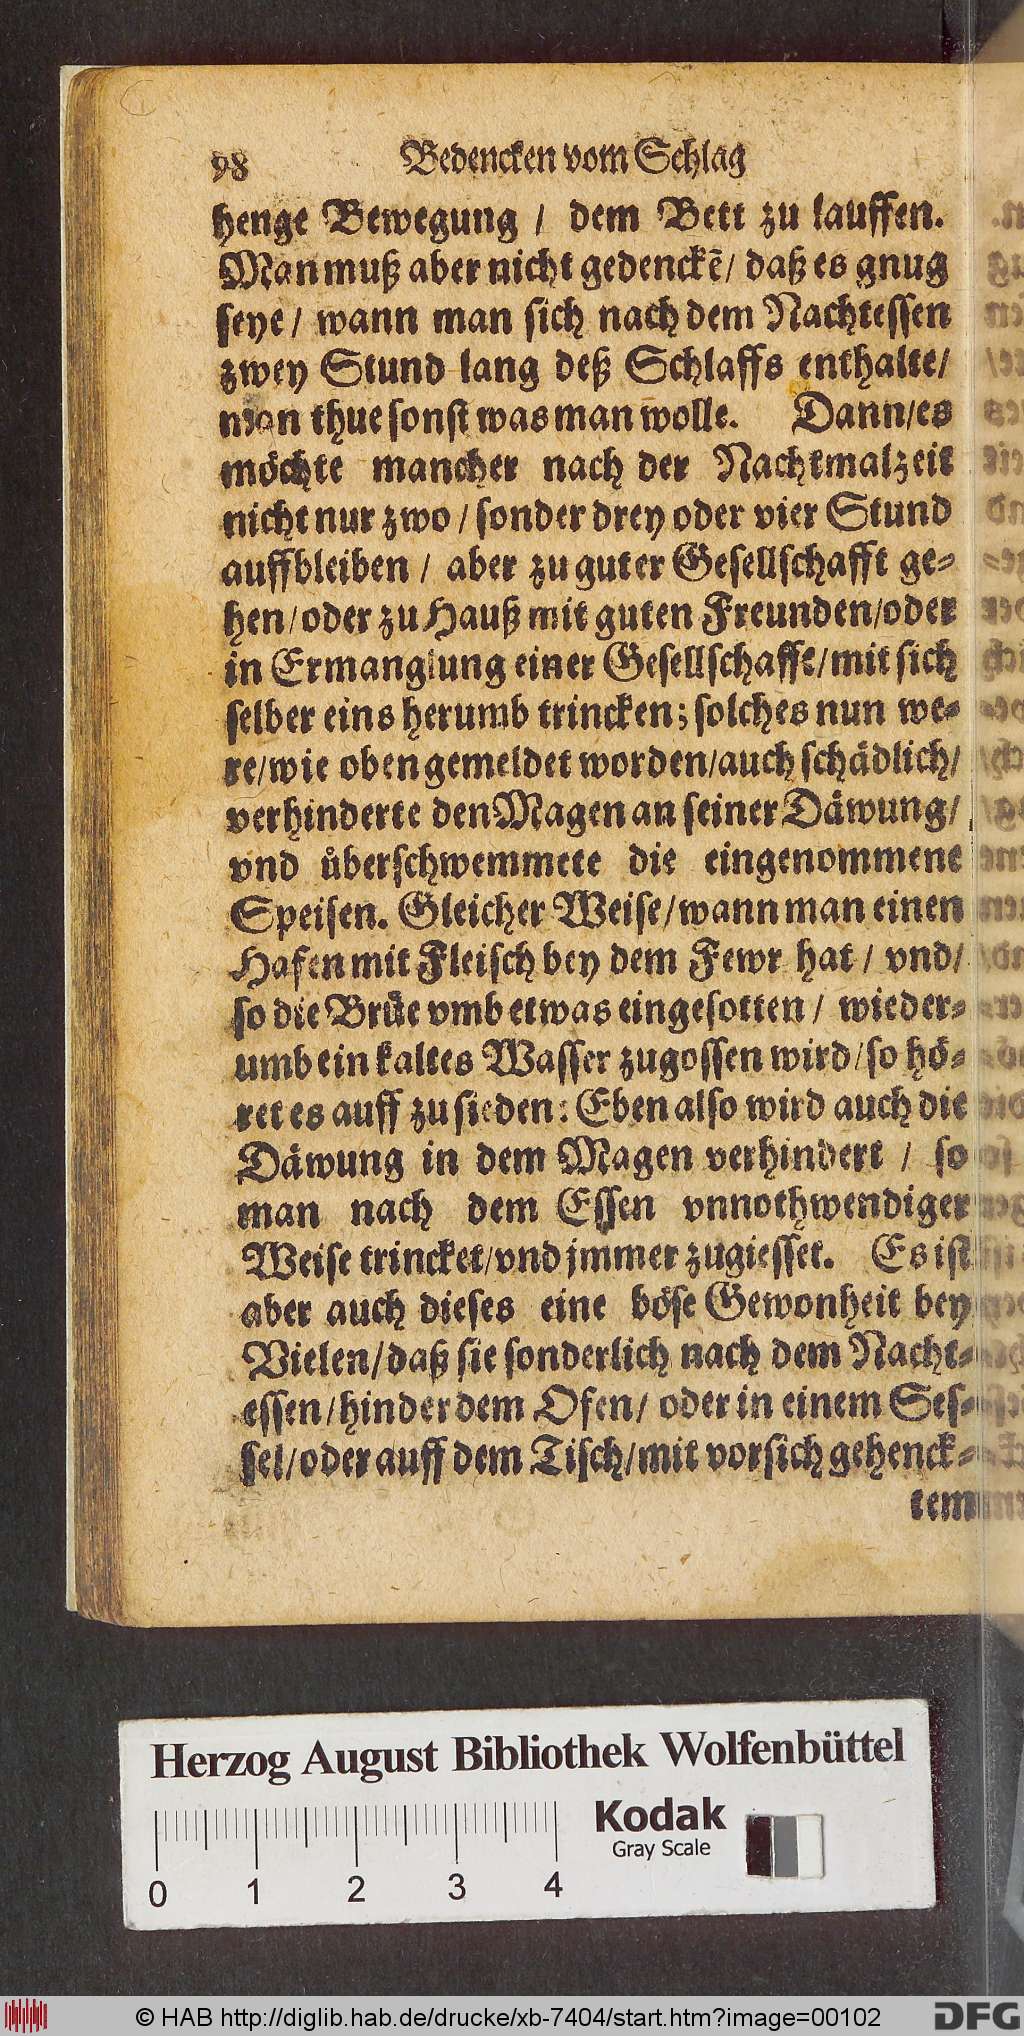 98 Bedencken vom Schlag
henge Bewegung / dem Bett zu lauffen.
Man muß aber nicht gedenckẽ/ daß es gnug
seye/ wann man sich nach dem Nachtessen
zwey Stund lang deß Schlaffs enthalte/
man thue sonst was man wolle. Dann/es
möchte mancher nach der Nachtmalzeit
nicht nur zwo / sonder drey oder vier Stund
auffbleiben / aber zu guter Gesellschafft ge-
hen/oder zu Hauß mit guten Freunden/oder
in Ermanglung einer Gesellschafft/mit sich
selber eins herumb trincken; solches nun we-
re/wie oben gemeldet worden/auch schädlich/
verhinderte den Magen an seiner Däwung/
vnd uͤberschwemmete die eingenommene
Speisen. Gleicher Weise/wann man einen
Hafen mit Fleisch bey dem Fewr hat / vnd/
so die Bruͤe vmb etwas eingesotten / wieder-
umb ein kaltes Wasser zugossen wird/so hö-
ret es auff zu sieden: Eben also wird auch die
Däwung in dem Magen verhindert / so
man nach dem Essen vnnothwendiger
Weise trincket/vnd jmmer zugiesset. Es ist
aber auch dieses eine böse Gewonheit bey
Vielen/daß sie sonderlich nach dem Nacht-
essen/hinder dem Ofen/ oder in einem Ses-
sel/oder auff dem Tisch/mit vorsich gehenck-
tem
Herzog August Bibliothek Wolfenbüttel
Kodak
Gray Scale
0 1 2 3 4
© HAB http://diglib.hab.de/drucke/xb-7404/start.htm?image=00102
DFG